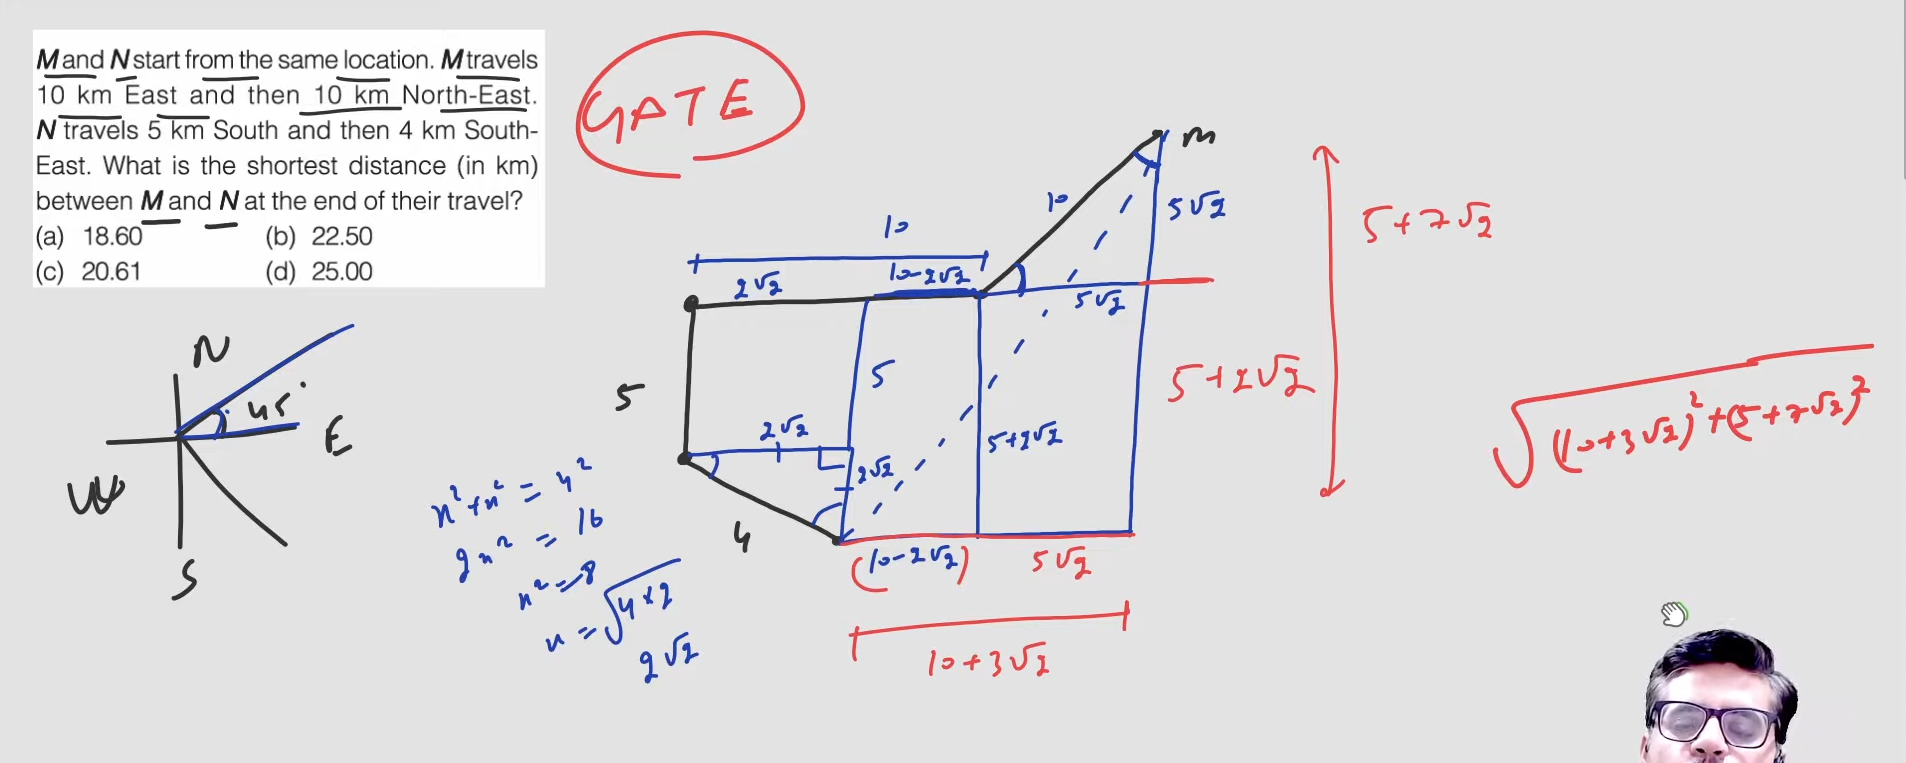 M and N start from the same location. M travels
10 km East and then 10 km North-East.
N travels 5 km South and then 4 km South-
East. What is the shortest distance (in km)
between M and N at the end of their travel?
(a) 18.60 (b) 22.50
(c) 20.61 (d) 25.00
GATE
N
45°
E
W
S
M
10
5√2
10
2√2
10-2√2
5√2
5
5
2√2
2√2
5+2√2
4
(10-2√2)
5√2
10+3√2
5+7√2
5+2√2
√(10+3√2)²+(5+7√2)²
x²+x² = 4²
2x² = 16
x² = 8
x = √4×2
2√2